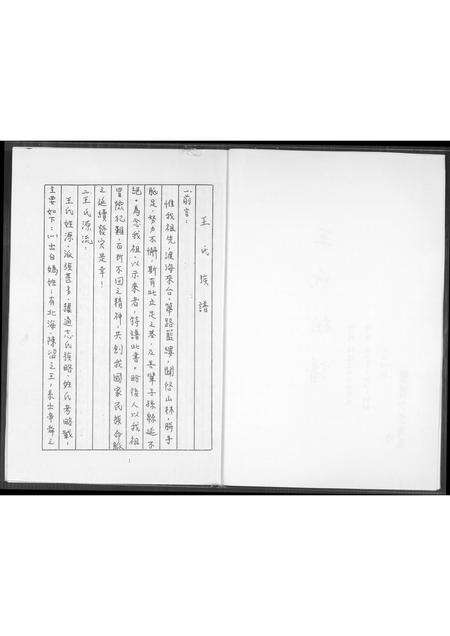 王氏族譜
(一)前言:
惟我祖先,渡海來台,篳路藍縷,開啓山林,胼手
胝足,努力不懈,斯有此立足之基,及吾輩子孫綿延不
絕。為念我祖,以示來者,特譜此書。盼後人以我祖
冒險犯難,百折不回之精神,共創我國家民族命脈
之延續發突是幸!
(二)王氏源流:
王氏姓源,派頭甚多,據通志氏族略,姓氏考略載,
主要如下:(一)出自媯姓:有北海、陳留之王,系出帝舜之
1